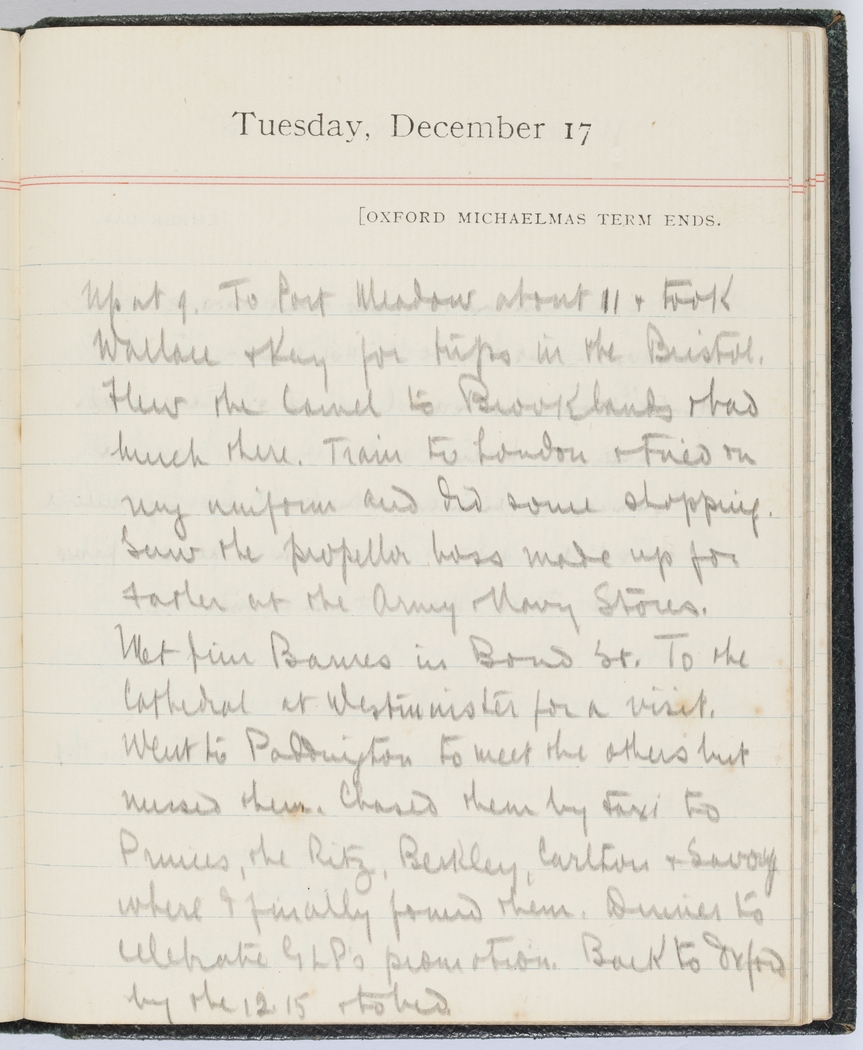 Tuesday, December 17
[OXFORD MICHAELMAS TERM ENDS.
Up at 9. To Port Meadow about 11 & took
Wallace & Kay for trips in the Bristol.
Flew the Camel to Brooklands & had
lunch there. Train to London & tried on
my uniform and did some shopping.
Saw the propellor boss made up for
Father at the Army & Navy Stores.
Met Jim Barnes in Bond St. To the
Cathedral at Westminster for a visit.
Went to Paddington to meet the others but
missed them. Chased them by taxi to
Princes, the Ritz, Berkley, Carlton & Savoy
where I finally found them. Dinner to
celebrate GLP's promotion. Back to Oxford
by the 12.15 & to bed.